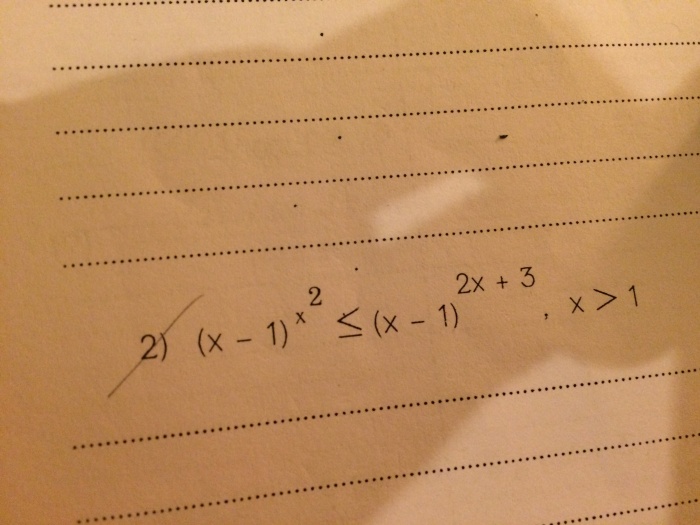 2) (x − 1)^x^2 ≤ (x − 1)^2x + 3, x > 1